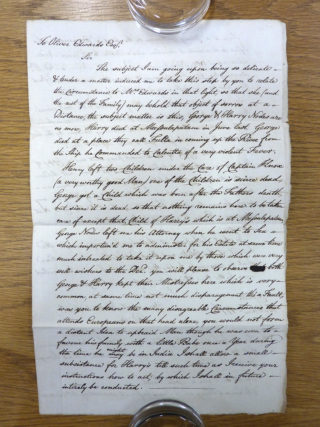 To Oliver Edwards Esqr.
Sir
The subject I am going upon being so delicate
& tender a matter induced me to take this step by you to relate
the Circumstances to Mrs. Edwards in that light, so that she, (and
the rest of the Family) may behold that object of sorrow at a
Distance, the subject matter is this; George & Harry Nodes are
no more, Harry died at Masulapatam in June last George
died at a place they call Fulta in coming up the River from
the Ship he Commanded to Calcutta of a very violent Fever.
Henry left two Children under the Care of Captain
(a very worthy good Man) one of the Children is since dead,
George got a Child which was born after the Fathers death,
but since it is dead so that nothing remains here to be taken
care of except that Child of Harry's which is at Masulapatam
George Nodes left me his Attorney when he went to Sea
which impower'd me to administer for his Estate at same time
much intreated to take it upon me by those which were very
well wishers to the Decd. You will please to observe both
George & Harry kept their Mistresses here which is very
common at same time not much disparagement tho' a Fault,
was you to know the many disagreeable Circumstances that
attends Europeans on that head alone you would not from
a distant Idea to upbraid Men though he was even to
favour his family with a little Broke once a Year during
the time he might be in India I shall allow a small
subsistance for Harry's till such time as I receive your
instructions how to act, by which I shall in future
intirely be conducted.